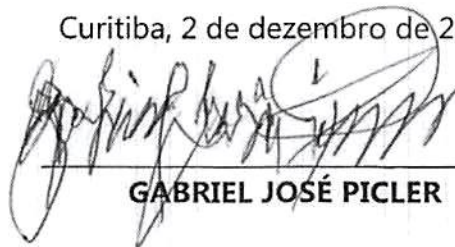 Curitiba, 2 de dezembro de 2
GABRIEL JOSÉ PICLER